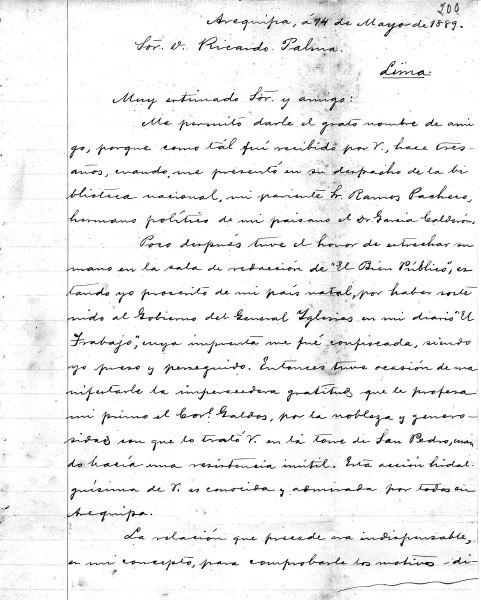 200
Arequipa, á 14 de Mayo de 1889.
Sór. D. Ricardo Palma.
Lima.
Muy estimado Sór. y amigo:
Me permito darle el grato nombre de ami
go, porque como tál fuí recibido por V., hace tres
años, cuando me presentó en su despacho de la bi
blioteca nacional, mi pariente Sr. Ramos Pacheco,
hermano político de mi paisano el Dr. García Calderón.
Poco después tuve el honor de estrechar su
mano en la sala de redacción de "El Bien Público", es
tando yo proscrito de mi país natal, por haber soste
nido al Gobierno del General Yglesias en mi diario "El
Trabajo", cuya imprenta me fué confiscada, siendo
yo preso y perseguido. Entonces tuve ocasión de ma
nifestarle la imperecedera gratitud que le profesa
mi primo el Corl. Galdos, por la nobleza y genero-
sidad con que lo trató V. en la torre de San Pedro, cuan
do hacía una resistencia inútil. Esta acción hidal
guísima de V. es conocida y admirada por todos en
Arequipa.
La relación que precede era indispensable,
en mi concepto, para comprobarle los motivos di-